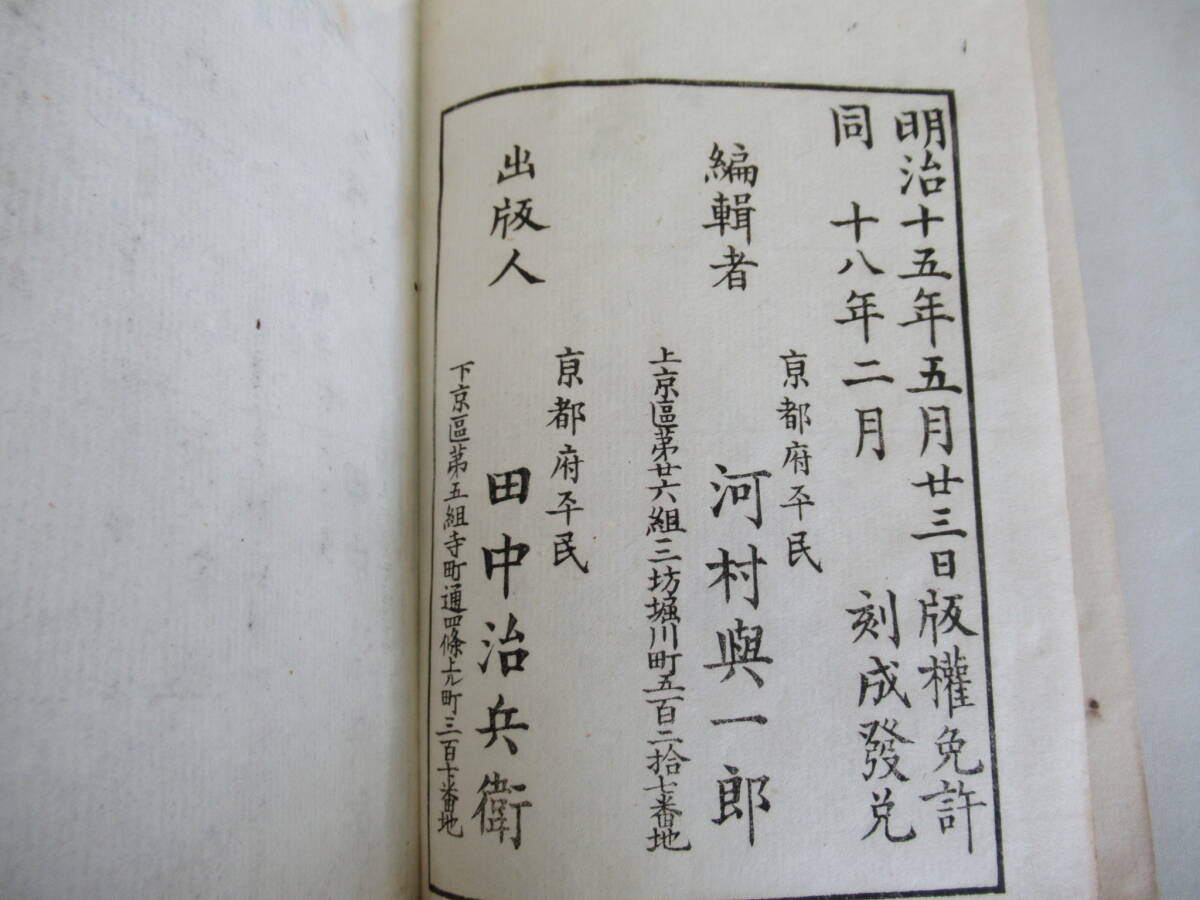 明治十五年五月廿三日版權免許
同 十八年二月 刻成發兌
京都府平民
編輯者 河村與一郎
上京區第廿六組三坊堀川町五百二拾七番地
京都府平民
出版人 田中治兵衛
下京區第五組寺町通四條上ル町三百十七番地